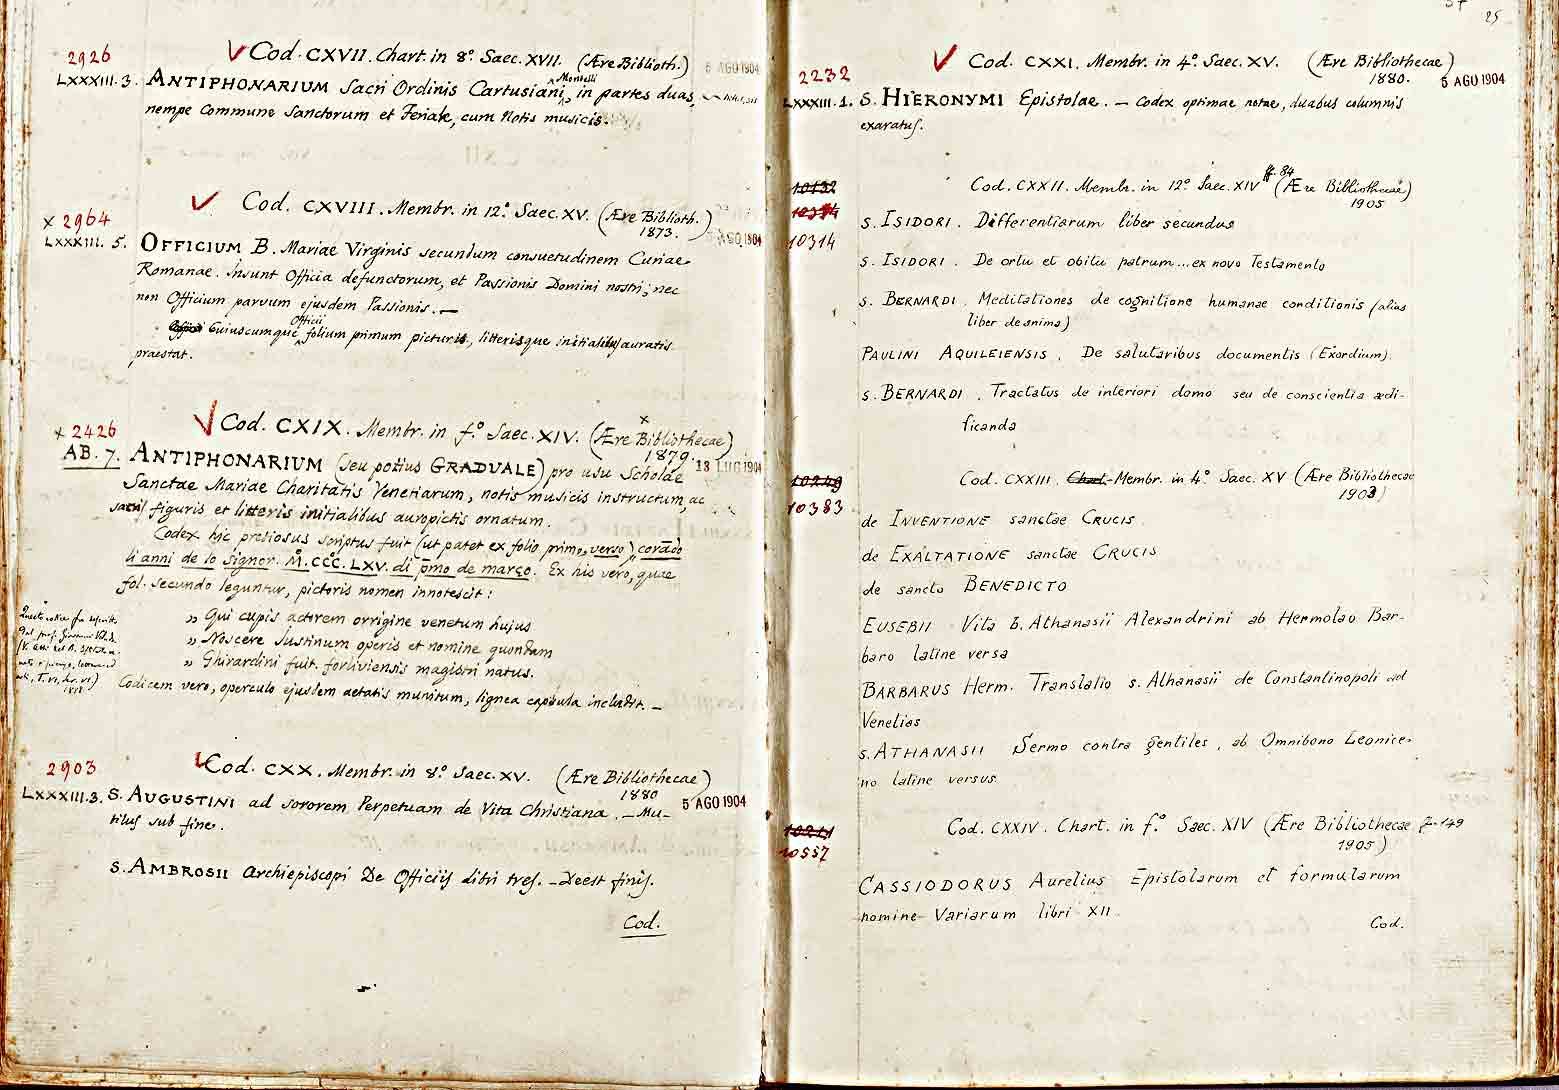 2926
Cod. CXVII. Chart. in 8.º Saec. XVII. (Ære Biblioth.)
5 AGO 1904
LXXXIII. 3. ANTIPHONARIUM Sacri Ordinis Cartusiani, in partes duas,
nempe Commune Sanctorum et Feriale, cum Notis musicis.
Cod. CXVIII. Membr. in 12.º Saec. XV. (Ære Biblioth.)
1873.
x 2964
LXXXIII. 5. OFFICIUM B. Mariae Virginis secundum consuetudinem Curiae
Romanae. Insunt Officia defunctorum, et Passionis Domini nostri; nec
non Officium parvum ejusdem Passionis. —
Officii
Cuiuscumque folium primum picturis, litterisque initialibus auratis
praestat.
Cod. CXIX. Membr. in f.º Saec. XIV. (Ære Bibliothecae)
x
1879.
x 2426
AB. 7. ANTIPHONARIUM (seu potius GRADUALE) pro usu Scholae
18 LUG 1904
Sanctae Mariae Charitatis Venetiarum, notis musicis instructum, ac
sacris figuris et litteris initialibus auropictis ornatum.
Codex hic pretiosus scriptus fuit (ut patet ex folio primo, verso) corādo
li anni de lo Signor. M.CCC.LXV. di pmo de março. Ex his vero, quae
fol. secundo leguntur, pictoris nomen innotescit:
» Qui cupis actorem orrigine venetum hujus
» Noscere Justinum operis et nomine quondam
» Ghirardini fuit. forliviensis magistri natus.
Codicem vero, operculo ejusdem aetatis munitum, lignea capsula includit. —
2903
Cod. CXX. Membr. in 8.º Saec. XV. (Ære Bibliothecae)
1880
5 AGO 1904
LXXXIII. 3. S. AUGUSTINI ad sororem Perpetuam de Vita Christiana. — Mu-
tilus sub fine.
S. AMBROSII Archiepiscopi De Officiis Libri tres. — Deest finis.
Cod.
25
Cod. CXXI. Membr. in 4.º Saec. XV. (Ære Bibliothecae)
1880.
5 AGO 1904
2232
LXXXIII. 1. S. HIERONYMI Epistolae. — Codex optimae notae, duabus columnis
exaratus.
ff. 84
10132
Cod. CXXII. Membr. in 12.º Saec. XIV (Ære Bibliothecae)
1905
10314
S. ISIDORI. Differentiarum liber secundus
S. ISIDORI. De ortu et obitu patrum... ex novo Testamento
S. BERNARDI. Meditationes de cognitione humanae conditionis (alias
liber de anima)
PAULINI AQUILEIENSIS. De salutaribus documentis (Exordium).
S. BERNARDI. Tractatus de interiori domo seu de conscientia ædi-
ficanda
10249
10383
Cod. CXXIII. Chart. Membr. in 4.º Saec. XV (Ære Bibliothecae
1903)
de INVENTIONE sanctae CRUCIS
de EXALTATIONE sanctae CRUCIS
de sancto BENEDICTO
EUSEBII Vita b. Athanasii Alexandrini ab Hermolao Bar-
baro latine versa
BARBARUS Herm. Translatio s. Athanasii de Constantinopoli ad
Venetias
S. ATHANASII Sermo contra gentiles, ab Omnibono Leonice-
no latine versus
10211
10557
Cod. CXXIV. Chart. in f.º Saec. XIV (Ære Bibliothecae ff. 149
1905)
CASSIODORUS Aurelius Epistolarum et formularum
nomine Variarum libri XII.
Cod.